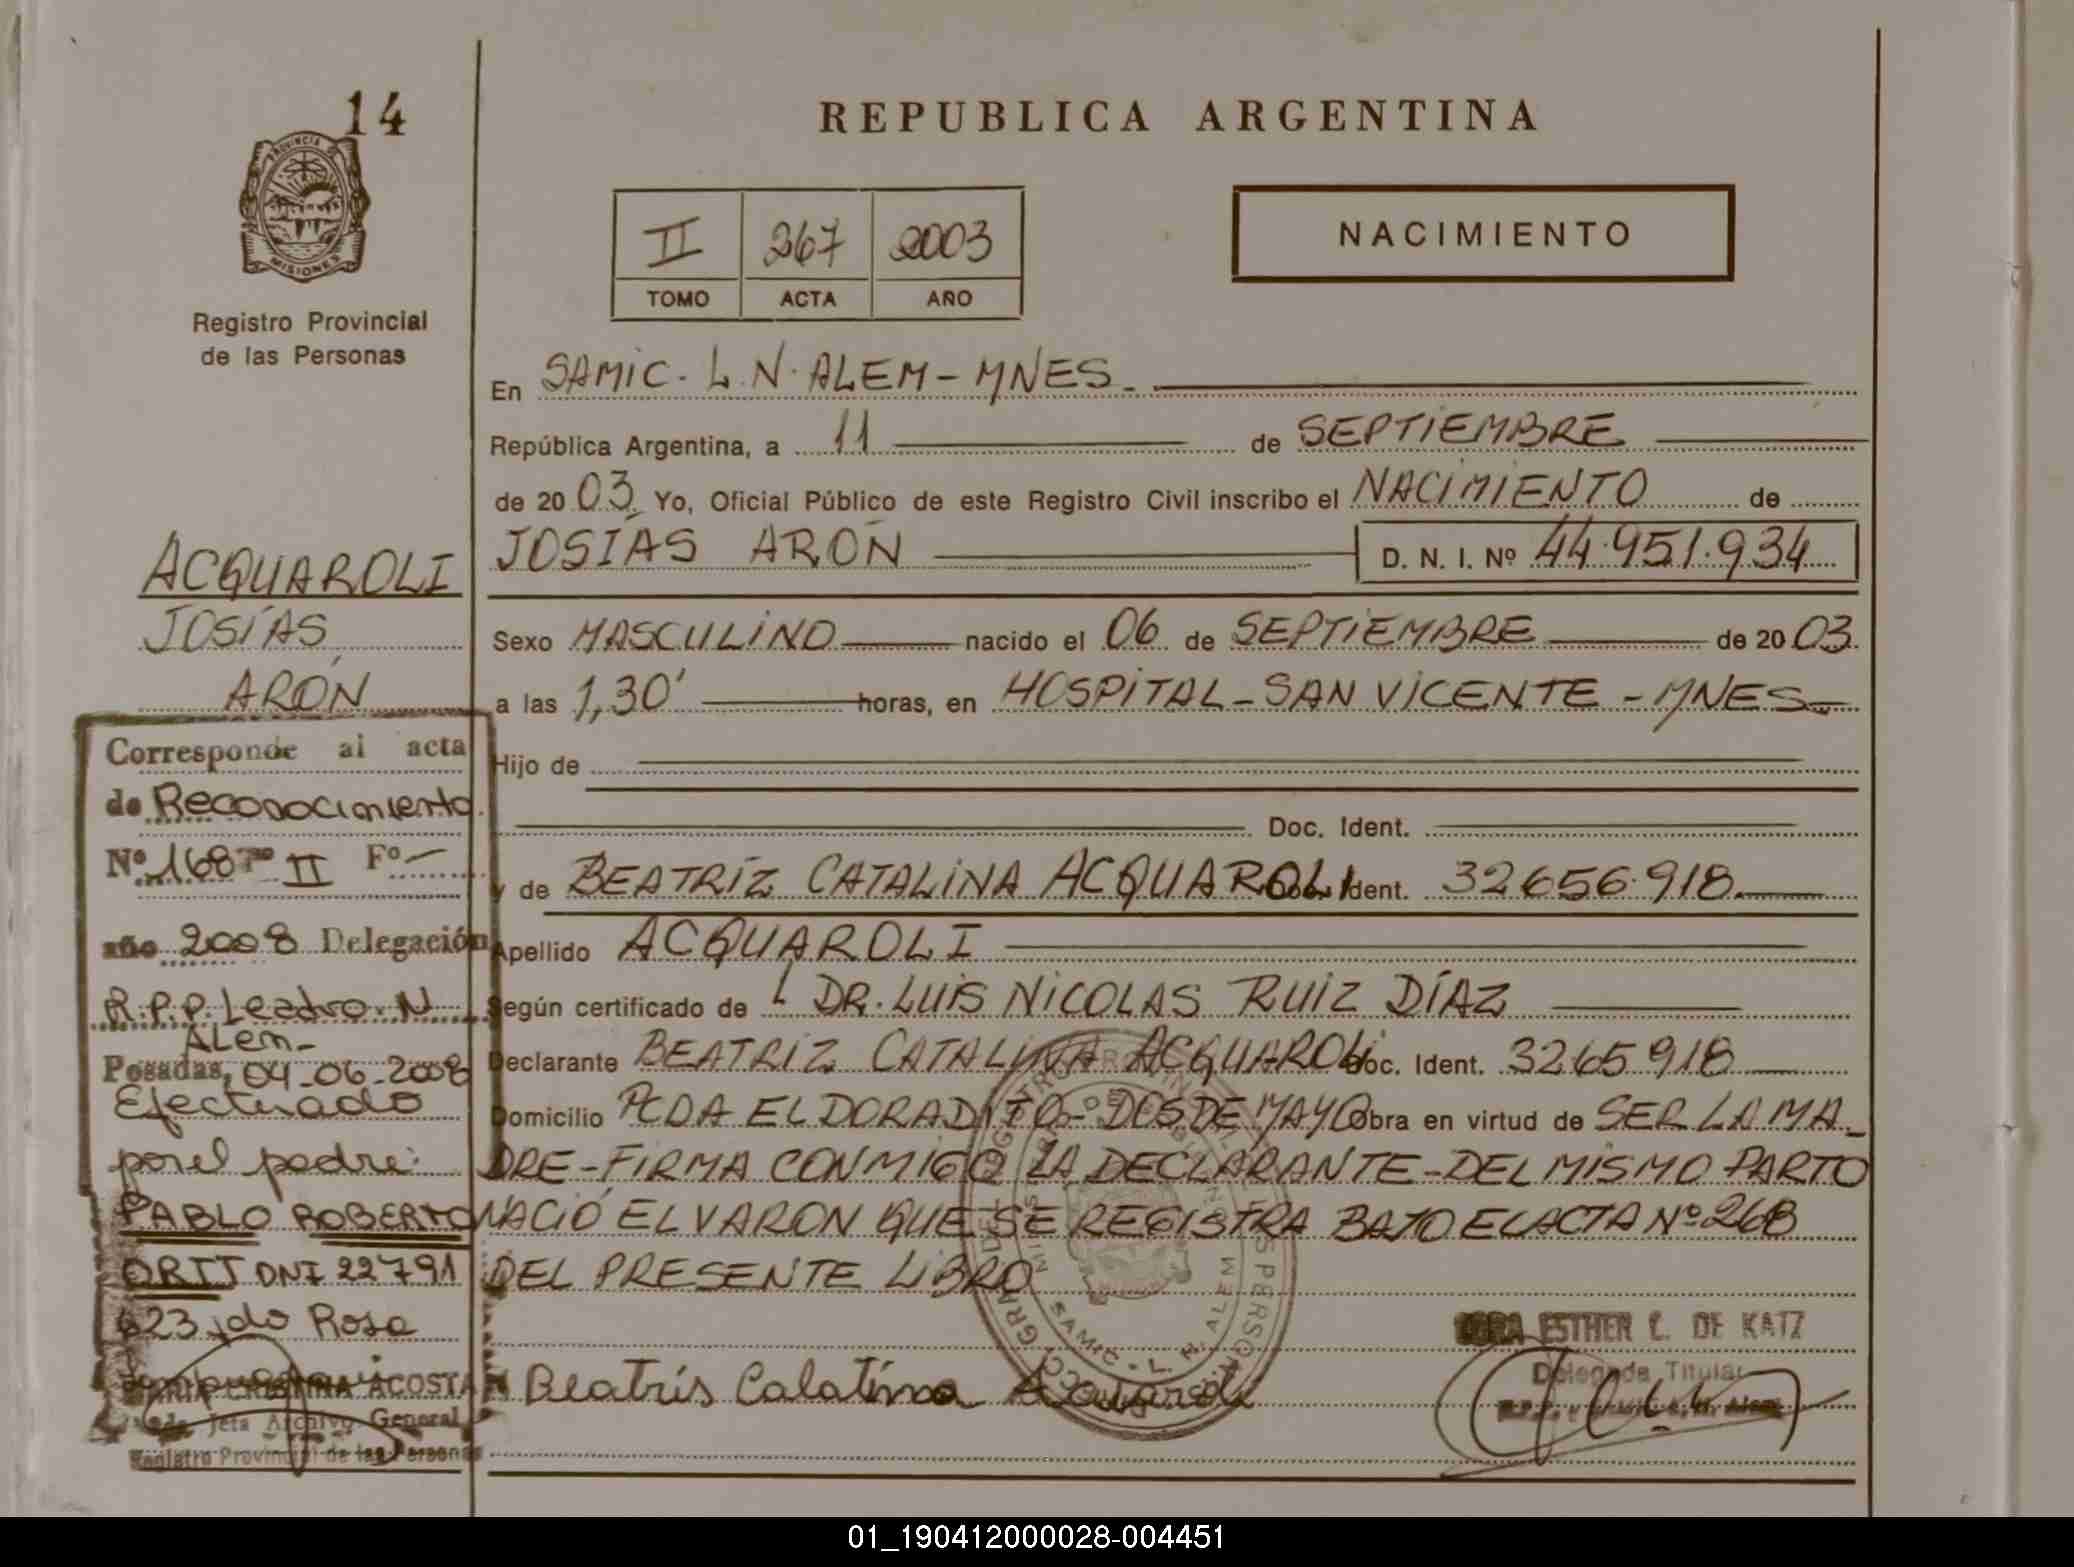 14
PROVINCIA DE
MISIONES
Registro Provincial
de las Personas
REPUBLICA ARGENTINA
II 267 2003
TOMO ACTA AÑO
NACIMIENTO
En SAMIC. L.N. ALEM - MNES.
República Argentina, a 11 de SEPTIEMBRE
de 20 03 Yo, Oficial Público de este Registro Civil inscribo el NACIMIENTO de
JOSÍAS ARÓN D. N. I. Nº 44.951.934
Sexo MASCULINO nacido el 06 de SEPTIEMBRE de 20 03.
a las 1,30' horas, en HOSPITAL - SAN VICENTE - MNES
Hijo de
Doc. Ident.
y de BEATRÍZ CATALINA ACQUAROLI Doc. Ident. 32656.918.
Apellido ACQUAROLI
Según certificado de DR. LUIS NICOLAS RUIZ DÍAZ
Declarante BEATRIZ CATALINA ACQUAROLI Doc. Ident. 3265918
Domicilio PCDA ELDORADITO - DOS DE MAYO Obra en virtud de SER LA MA_
DRE - FIRMA CONMIGO LA DECLARANTE - DEL MISMO PARTO
NACIÓ EL VARON QUE SE REGISTRA BAJO EL ACTA Nº 268
DEL PRESENTE LIBRO
Beatris Catalina Acquaroli
ESTHER C. DE KATZ
Delegada Titular
SAMIC - L. N. ALEM
ACQUAROLI
JOSÍAS
ARÓN
Corresponde al acta
de Reconocimiento.
Nº 168 Tº II Fº -
año 2008 Delegación
R.P.P. Leadro. N
Alem -
Posadas, 04-06-2008
Efectuado
por el padre:
PABLO ROBERTO
ORTT DNI 22791
623, do Rosa
MARIA CRISTINA ACOSTA
Jefa Archivo General
Registro Provincial de las Personas
01_190412000028-004451